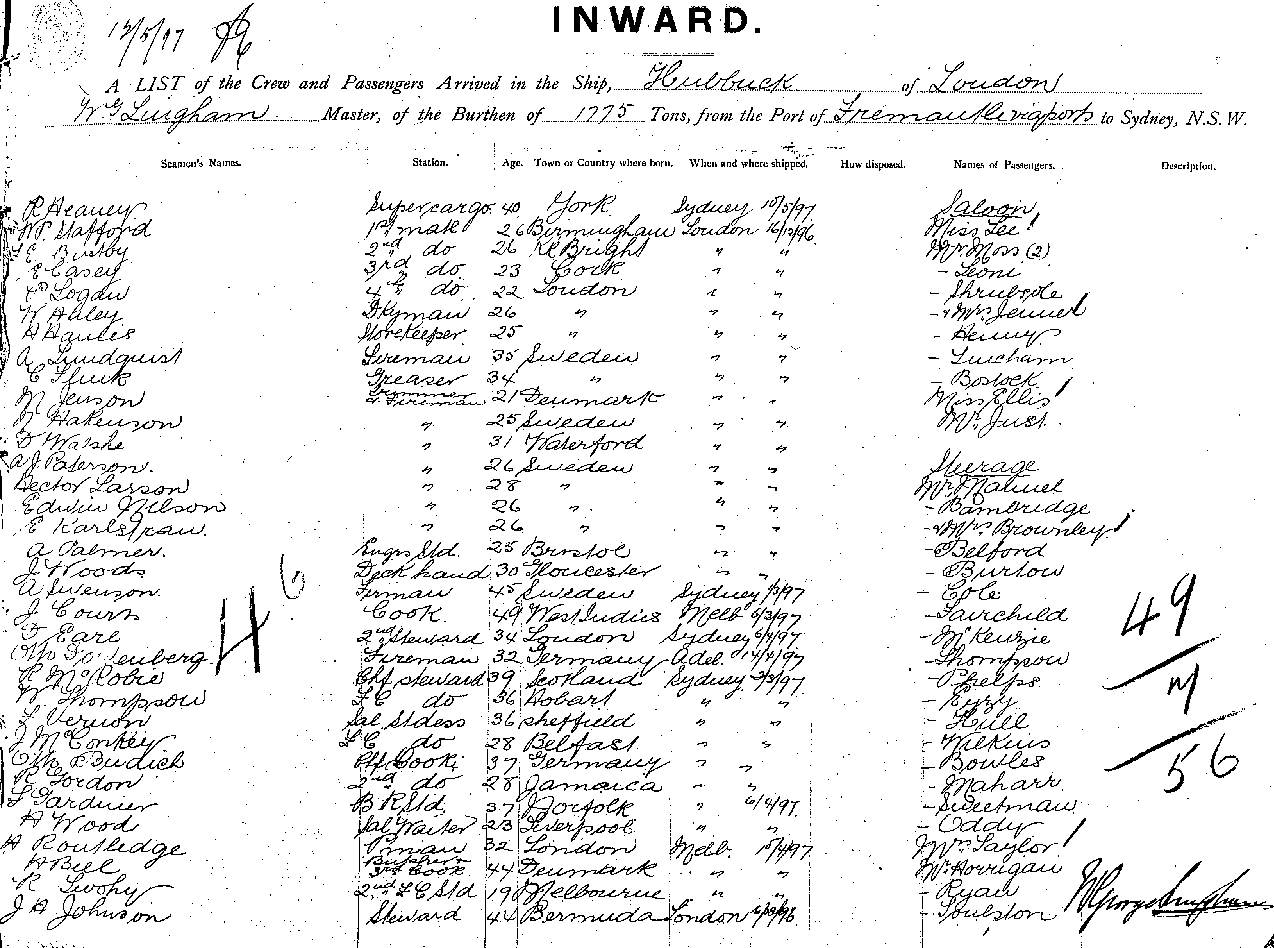 12/5/97
INWARD.
A LIST of the Crew and Passengers Arrived in the Ship, Hubbuck of London
Wm G Lingham Master, of the Burthen of 1775 Tons, from the Port of Fremantle to Sydney, N.S.W.
Seamen's Names. Station. Age. Town or Country where born. When and where shipped. How disposed. Names of Passengers. Description.
R Heaney Supercargo 40 York Sydney 10/5/97 Saloon
W. Stafford 1st mate 26 Birmingham London 16/12/96 Miss Lee
E Busby 2nd do 26 " " Mr Moss (2)
E Casey 3rd do 23 Cork " " - Leoni
Logan 4th do 22 London " " - Shrubsole
W Abley Dkyman 26 " " " - " Mrs Jenner
A Storekeeper 25 " " " - Henny
A Lundquist Fireman 35 Sweden " " -
C Greaser 34 " " " - Bostock
N Jenson Trimmer & Fireman 21 Denmark " " Miss Ellis
N Hakenson " 25 Sweden " " Mr Just
D Walshe " 31 Waterford " "
A J Paterson. " 26 Sweden " " Steerage
Hector Larson " 28 " " " Mr Manuel
Edwin Nilson " 26 " " " - Bambridge
E " 26 " " " - " Mrs Brownley
A Palmer. Engrs Std. 25 Bristol " " - Belford
J Woods Deck hand 30 Gloucester " " - Burton
A Swenson Firman 45 Sweden Sydney /3/97 - Cole
J Cook 49 West Indies Melb 6/3/97 - Fairchild
D Earl 2nd Steward 34 London Sydney 6/4/97 - McKenzie
Otto Fireman 32 Germany Adel. 14/4/97 - Thompson
R McRobie Chf steward 39 Scotland Sydney /97 - Phelps
W Thompson do 36 Hobart " " -
L Vernon Sal Stdess 36 Sheffield " " - Hill
J McConkey do 28 Belfast " " - Wilkins
Otto Budich Chf Cook 37 Germany " " - Bowles
R Gordon 2nd do 28 Jamaica " " - Maharr
L Gardiner B R Std. 37 Norfolk " 6/4/97 - Sweetman
A Wood Sal Waiter 23 Liverpool " " - Oddy
A Routledge Pman 32 London Melb. 15/4/97 Mrs Taylor
A Bill Butcher & 3rd Cook 44 Denmark " " Mr Horrigan
R 2nd Std 19 Melbourne " " - Ryan
J A Johnson Steward 44 Bermuda London /96 - Soulston
46
49
7
56